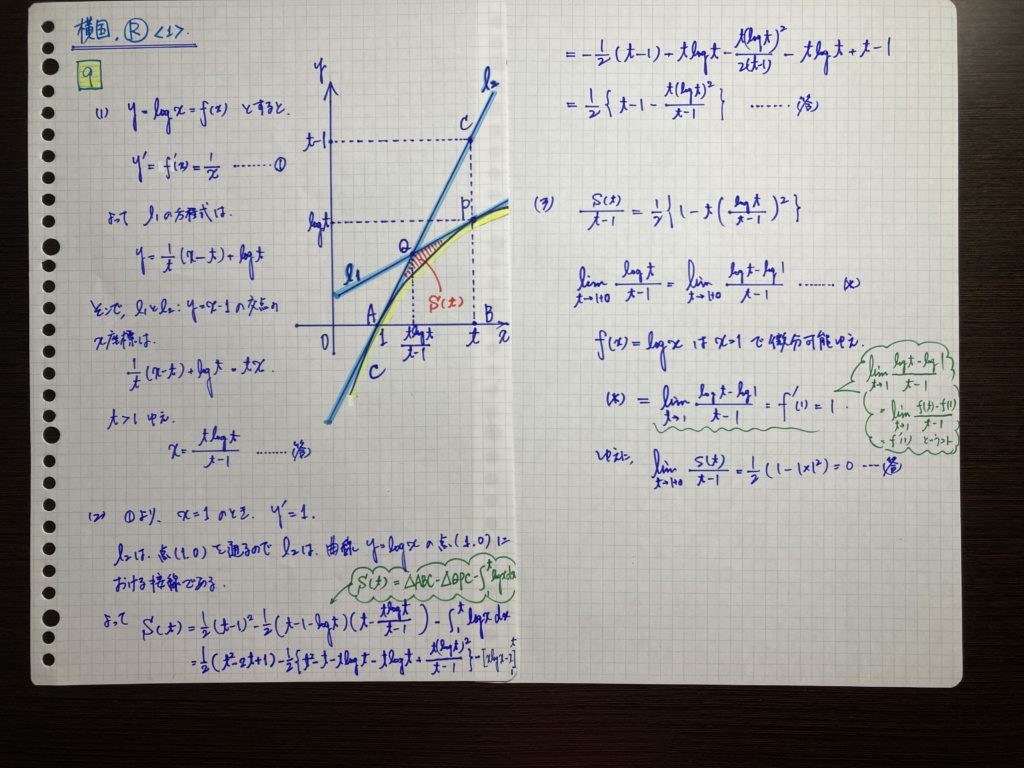 横国. Ⓡ <1>.
9
(1) y = log x = f(x) とすると.
y' = f'(x) = 1/x ……… ①
よって l₁の方程式は.
y = 1/t (x-t) + log t
そこで, l₁とl₂: y=x-1 の交点の
x座標は.
1/t (x-t) + log t = x.
t>1 ゆえ.
x = t log t/(t-1) ……… 答
y
l₂
t-1
C
log t
P
Q
l₁
S(t)
A
B
O
1
t log t/(t-1)
t
x
C
(2) ①より, x=1 のとき. y'=1.
l₂は. 点(1.0) を通るので l₂は. 曲線 y=log x の点(1.0) に
おける接線である.
S(t) = △ABC-△QPC-∫₁ᵗ log x dx
よって S(t) = 1/2 (t-1)² - 1/2 (t-1-log t)(t - t log t/(t-1)) - ∫₁ᵗ log x dx
= 1/2 (t²-2t+1) - 1/2 {t²-t-t log t - t log t + t(log t)²/(t-1)} - [x log x - x]₁ᵗ
= -1/2 (t-1) + t log t - t(log t)²/2(t-1) - t log t + t-1
= 1/2 { t-1- t(log t)²/(t-1) } ……… 答
(3) S(t)/(t-1) = 1/2 { 1 - t ( log t/(t-1) )² }
lim t→1+0 log t/(t-1) = lim t→1+0 (log t - log 1)/(t-1) ……… (*)
f(x) = log x は x=1 で 微分可能ゆえ.
(*) = lim t→1 (log t - log 1)/(t-1) = f'(1) = 1.
lim t→1 (log t - log 1)/(t-1)
= lim t→1 (f(t)-f(1))/(t-1)
= f'(1) ということ
ゆえに, lim t→1+0 S(t)/(t-1) = 1/2 (1-1×1²) = 0 … 答